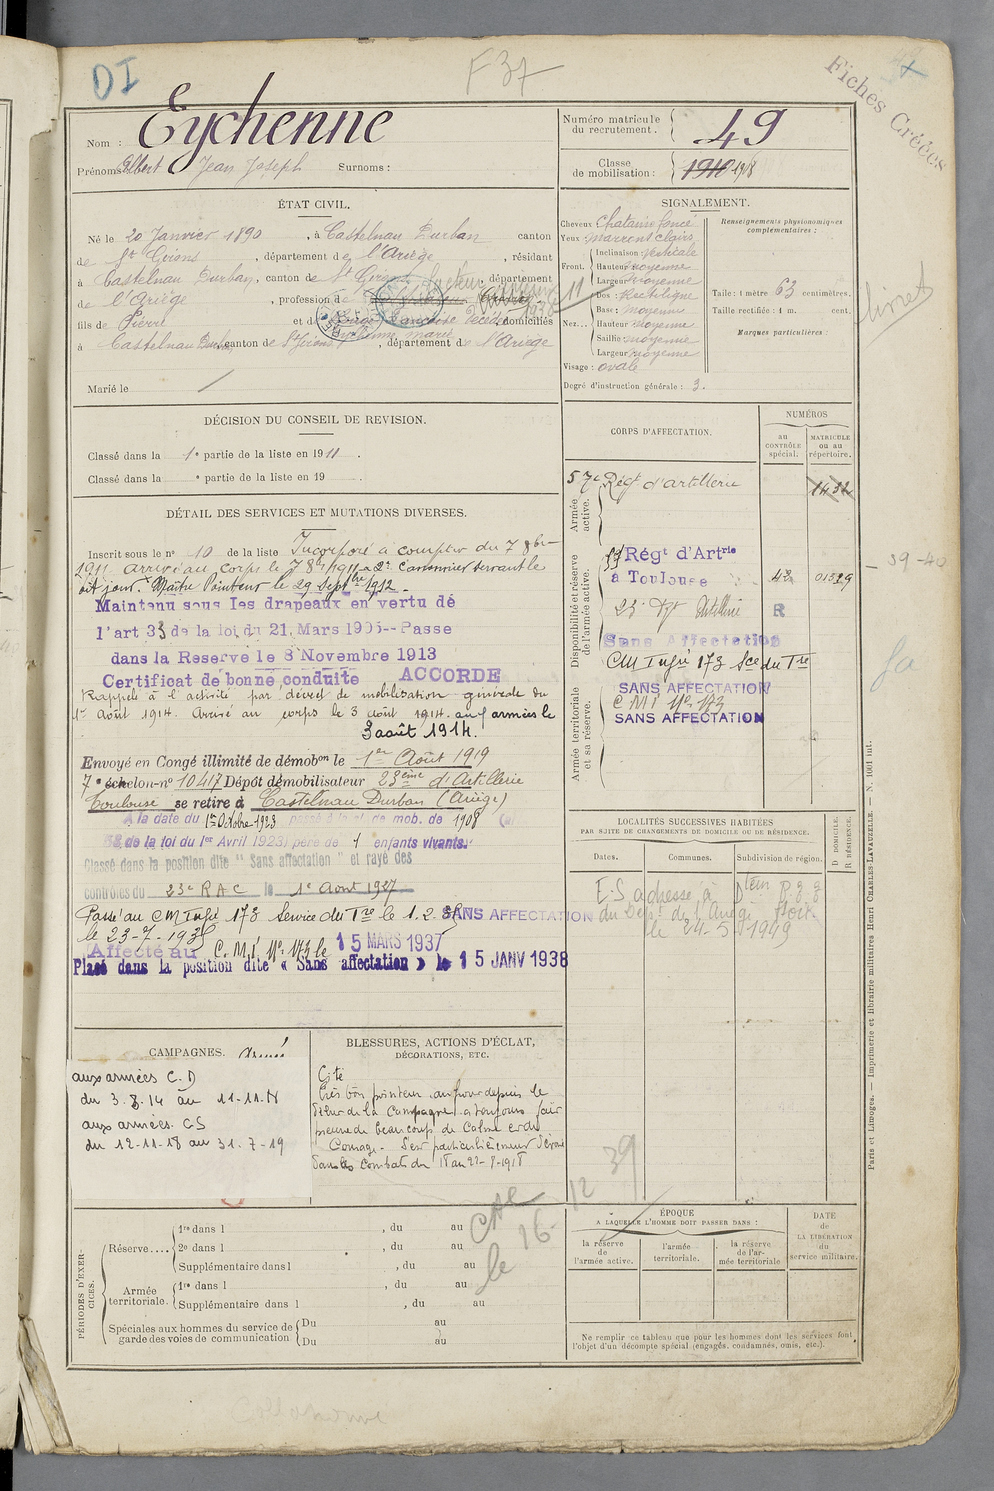 DI
F 37
Fiches Créées
Nom : Eychenne
Prénoms : Albert Jean Joseph Surnoms :
Numéro matricule du recrutement. 49
Classe de mobilisation : 1910 1908
ÉTAT CIVIL.
Né le 20 Janvier 1890, à Castelnau Durban canton
de St Girons, département de l'Ariège, résidant
à Castelnau Durban, canton de St Girons, département
de l'Ariège, profession de
fils de Pierre et de Françoise Décédé domiciliés
Eychenne Marie
à Castelnau Durban, canton de St Girons, département de l'Ariège
Marié le /
SIGNALEMENT.
Cheveux Chatains foncé
Yeux : marrons clairs
Front. Inclinaison : Verticale
Hauteur moyenne
Largeur moyenne
Nez... Dos : Rectiligne
Base : moyenne
Hauteur moyenne
Saillie moyenne
Largeur moyenne
Visage : ovale
Degré d'instruction générale : 3.
Renseignements physionomiques complémentaires :
Taille : 1 mètre 63 centimètres.
Taille rectifiée : 1 m. cent.
Marques particulières :
livret
DÉCISION DU CONSEIL DE REVISION.
Classé dans la 1e partie de la liste en 1911.
Classé dans la e partie de la liste en 19 .
DÉTAIL DES SERVICES ET MUTATIONS DIVERSES.
Inscrit sous le no 10 de la liste Incorporé à compter du 7 8bre
1911 arrivé au corps le 7 8bre 1911 2e Canonnier servant le
dit jour. Maître Pointeur le 29 Septbre 1912.
Maintenu sous les drapeaux en vertu dé
l'art 33 de la loi du 21 Mars 1905-- Passe
dans la Reserve le 8 Novembre 1913
Certificat de bonne conduite ACCORDE
Rappelé à l'activité par décret de mobilisation générale du
1er Août 1914. Arrivé au corps le 3 août 1914. aux armées le
3 août 1914.
Envoyé en Congé illimité de démobon le 1er Août 1919
7e échelon no 10417 Dépôt démobilisateur 23ème d'Artillerie
Toulouse se retire à Castelnau Durban (Ariège)
A la date du 1er Octobre 1923 passé à la cl. de mob. de 1908
58 de la loi du 1er Avril 1923) père de 1 enfants vivants.
Classé dans la position dite " Sans affectation " et rayé des
contrôles du 23e RAC le 1e Aout 1927
Passé au CM Infie 173 Service du Tre le 1.2.35 SANS AFFECTATION
le 23-7-1935
Affecté au C.M.I. No 173 le 15 MARS 1937
Placé dans la position dite « Sans affectation » le 15 JANV 1938
CORPS D'AFFECTATION.
NUMÉROS
au CONTRÔLE spécial.
MATRICULE ou au répertoire.
Armée active.
57e Régt d'artillerie 1432
Disponibilité et réserve de l'armée active.
Régt d'Artrie
à Toulouse
23e Rgt Artillerie R
Sans Affectation
CM Infie 173 Sce du Tre
Armée territoriale et sa réserve.
SANS AFFECTATION
C M I No 173
SANS AFFECTATION
39-40
LOCALITÉS SUCCESSIVES HABITÉES
PAR SUITE DE CHANGEMENTS DE DOMICILE OU DE RÉSIDENCE.
Dates. Communes. Subdivision de région. D DOMICILE. R RÉSIDENCE.
E-S adressé à
le 24-5-1949
CAMPAGNES.
aux armées C.D
du 3.8.14 au 11-11-18
aux armées CS
du 12-11-18 au 31.7-19
BLESSURES, ACTIONS D'ÉCLAT,
DÉCORATIONS, ETC.
Cité
Très bon pointeur, au front depuis le
début de la Campagne, a toujours fait
preuve de beaucoup de Calme et de
Courage. S'est particulièrement dévoué
dans les Combats du 18 au 22-8-1918
CAE
le 16-12 39
PÉRIODES D'EXERCICES.
Réserve.... 1re dans l , du au
2e dans l , du au
Supplémentaire dans l , du au
Armée territoriale. 1re dans l , du au
Supplémentaire dans l , du au
Spéciales aux hommes du service de garde des voies de communication
Du au
Du au
ÉPOQUE
A LAQUELLE L'HOMME DOIT PASSER DANS :
la réserve de l'armée active.
l'armée territoriale.
la réserve de l'armée territoriale
DATE de LA LIBÉRATION du service militaire.
Ne remplir ce tableau que pour les hommes dont les services font
l'objet d'un décompte spécial (engagés, condamnés, omis, etc.).
Paris et Limoges. — Imprimerie et librairie militaires Henri CHARLES-LAVAUZELLE. — N. 1001 int.